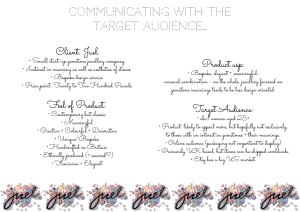 COMMUNICATING WITH THE
TARGET AUDIENCE...
Client: Juel
- Small start-up gemstone jewellery company
- Interest in meaning as well as aesthetics of stones
- Bespoke design service
- Price point: Twenty to Two Hundred Pounds
Feel of Product
- Contemporary but classic
- Meaningful
- Creative + Colourful + Decorative
- Unique / Bespoke
- Handcrafted in Britain
- Ethically produced (+ sourced?)
- Feminine + Elegant
Product usp:
- Bespoke, elegant + meaningful
unusual combination - on the whole, jewellery focused on
gemstone meanings tends to be less design oriented.
Target Audience:
- women aged 25+
- Product likely to appeal more, but hopefully not exclusively
to those with an interest in gemstones + their meanings.
- Online audience (packaging not important to display)
- Primarily UK based, but items can be shipped worldwide
+ Etsy has a big US market.
juel juel juel juel juel juel juel